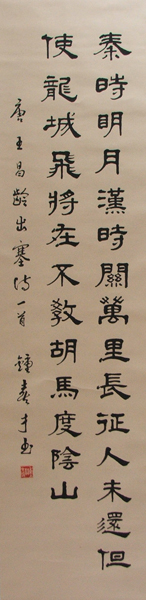 秦時明月漢時關萬里長征人未還但
使龍城飛將在不教胡馬度陰山
唐王昌齡出塞詩一首